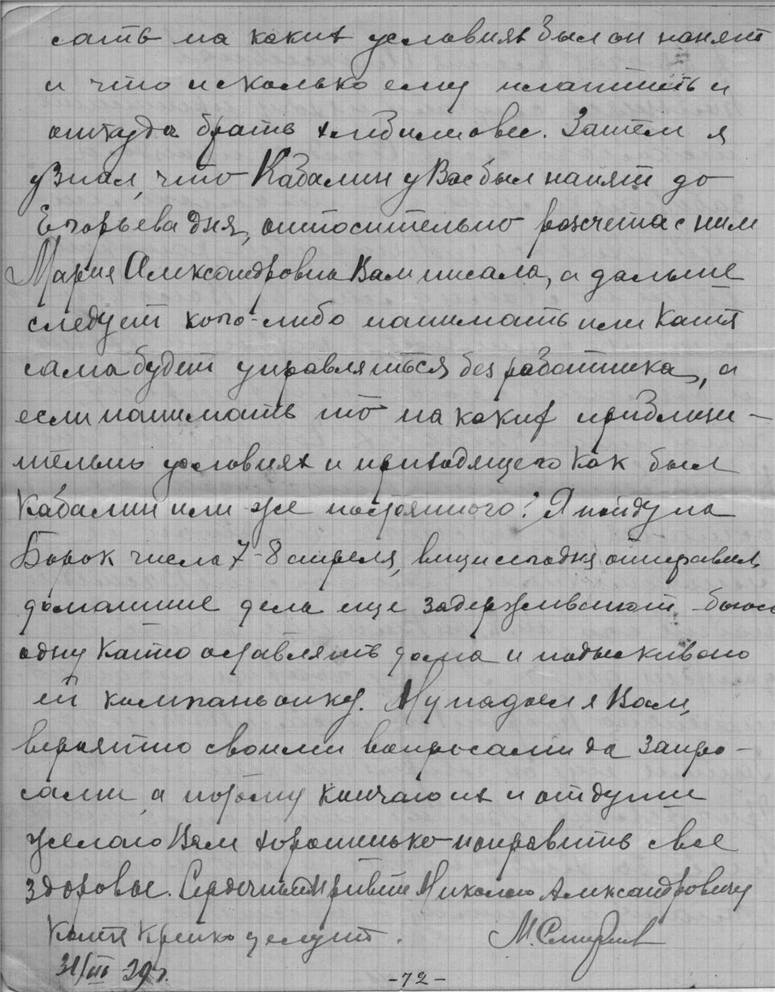 сать на каких условиях был он нанят
и что и сколько ему платить и
откуда брать хлеб и мовес. Затем я
узнал, что Кабалин у Вас был нанят до
Егорьева дня, относительно расчета с ним
Мария Александровна Вам писала, а дальше
следует кого-либо нанимать или Катя
сама будет управляться без работника, а
если нанимать то на каких приблизи-
тельно условиях и приходящего как был
Кабалин или же постоянного? Я пойду на
Борок числа 7-8 апреля, вещи сегодня отправил
домашние дела еще задерживают боюсь
одну Катю оставлять дома и подыскиваю
ей компаньонку. Ну надоел я Вам,
вероятно своими вопросами да запро-
сами, а потому кончаю их и от души
желаю Вам хорошенько поправить свое
здоровье. Сердечный привет Николаю Александровичу
Катя крепко целует. М. Смирнов
31/III 29 г.
-72-